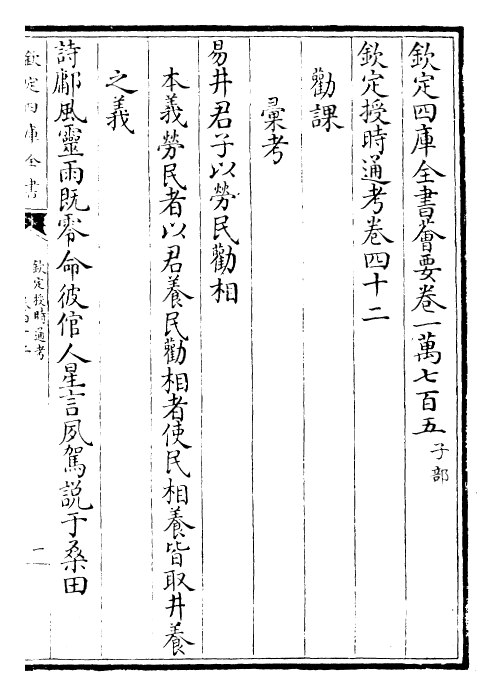 欽定四庫全書薈要卷一萬七百五子部
欽定授時通考卷四十二
勸課
彚考
易井君子以勞民勸相
本義勞民者以君養民勸相者使民相養皆取井養
之義
詩鄘風靈雨既零命彼倌人星言夙駕說于桑田
欽定四庫全書
欽定授時通考
一